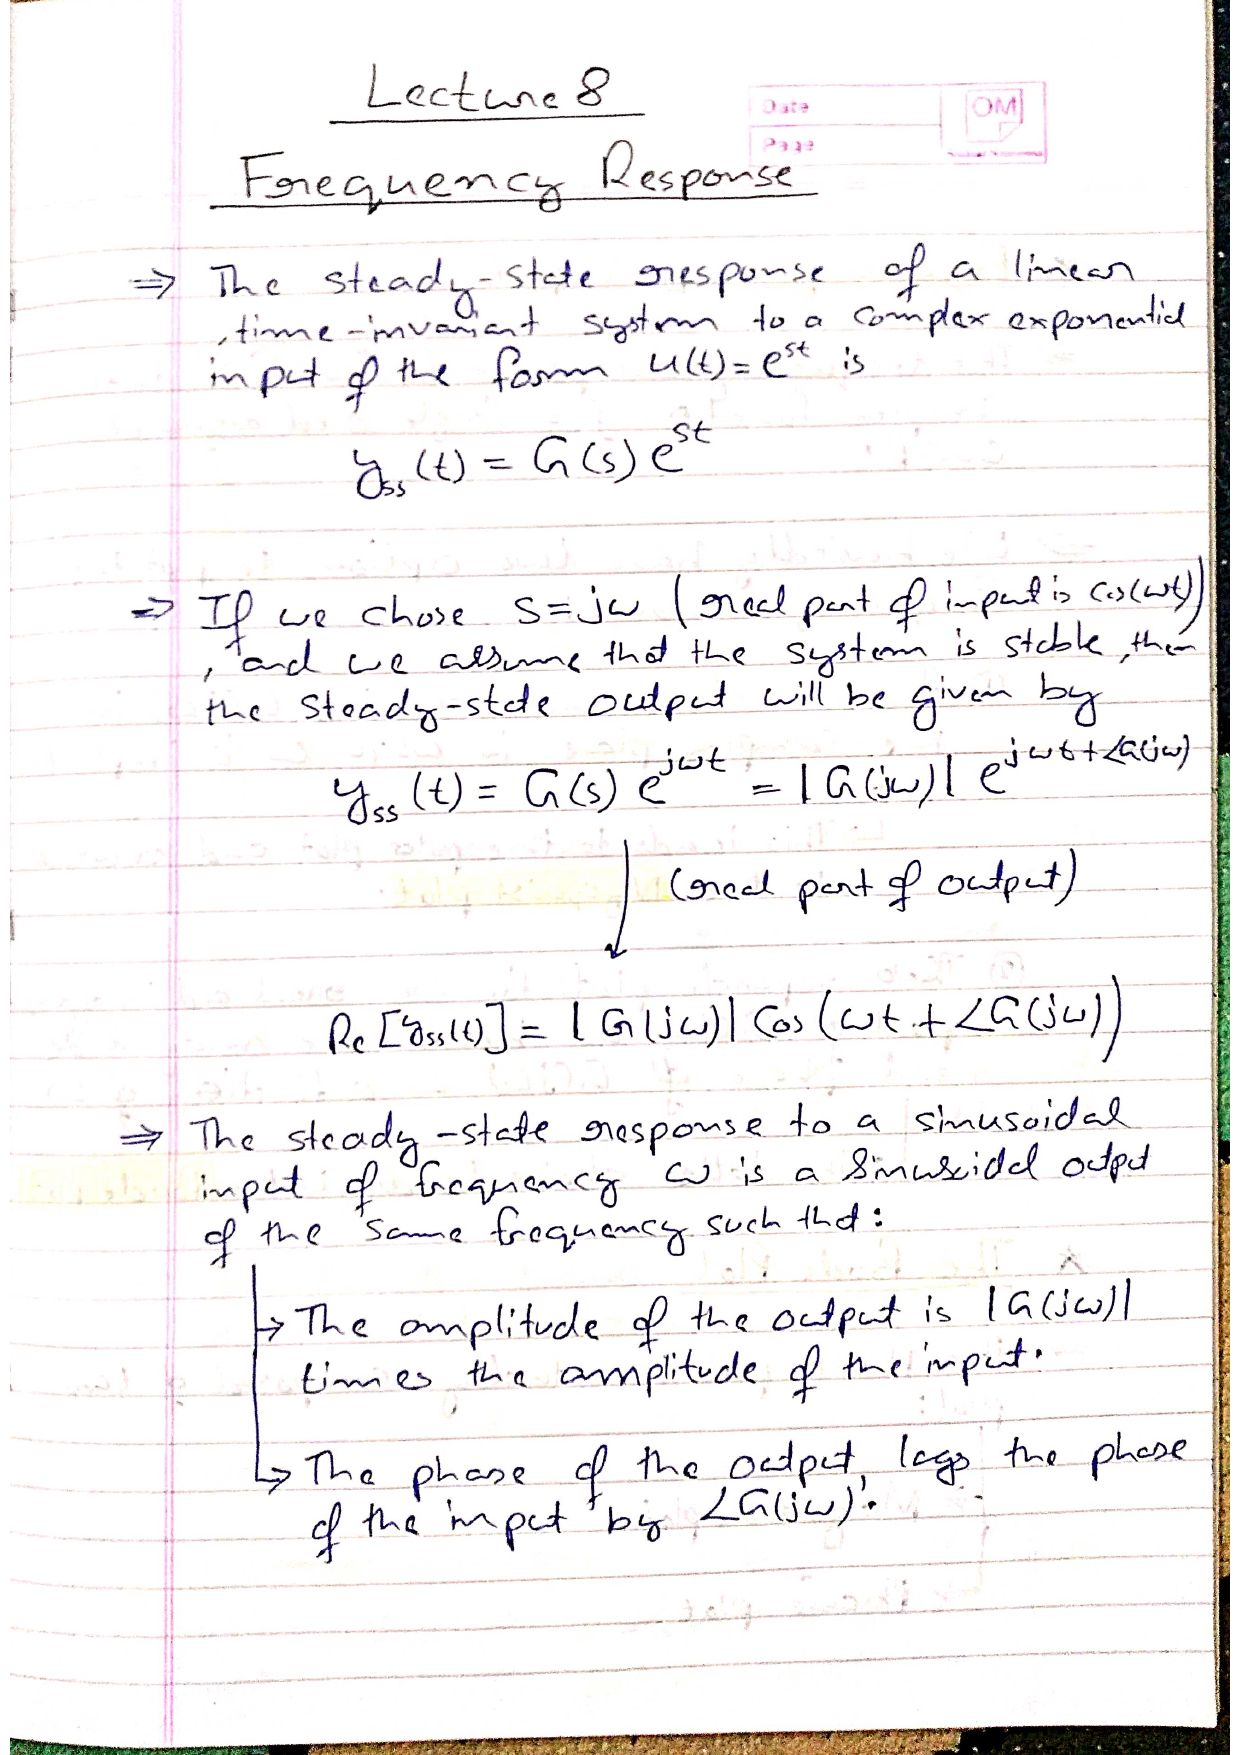 Lecture 8
Date
OM
Page
Frequency Response
⇒ The steady-state response of a linear
, time-invariant system to a complex exponential
input of the form u(t) = e^st is
y_ss (t) = G(s) e^st
⇒ If we chose s = jω (real part of input is cos(ωt))
, and we assume that the system is stable, then
the steady-state output will be given by
y_ss (t) = G(s) e^jωt = |G(jω)| e^jωt+∠G(jω)
(real part of output)
Re [y_ss(t)] = |G(jω)| Cos (ωt + ∠G(jω))
⇒ The steady-state response to a sinusoidal
input of frequency ω is a sinusoidal output
of the same frequency such that :
↳ The amplitude of the output is |G(jω)|
times the amplitude of the input.
↳ The phase of the output, lags the phase
of the input by ∠G(jω).